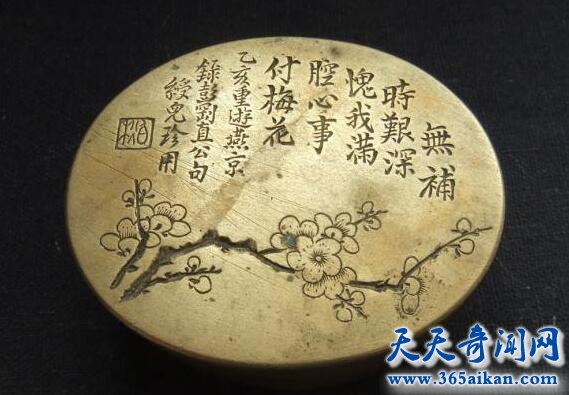 無補
時艱深
愧我滿
腔心事
付梅花
乙亥重游燕京
錄彭剛直公句
綬兒珍用
天天奇闻网
www.365aikan.com